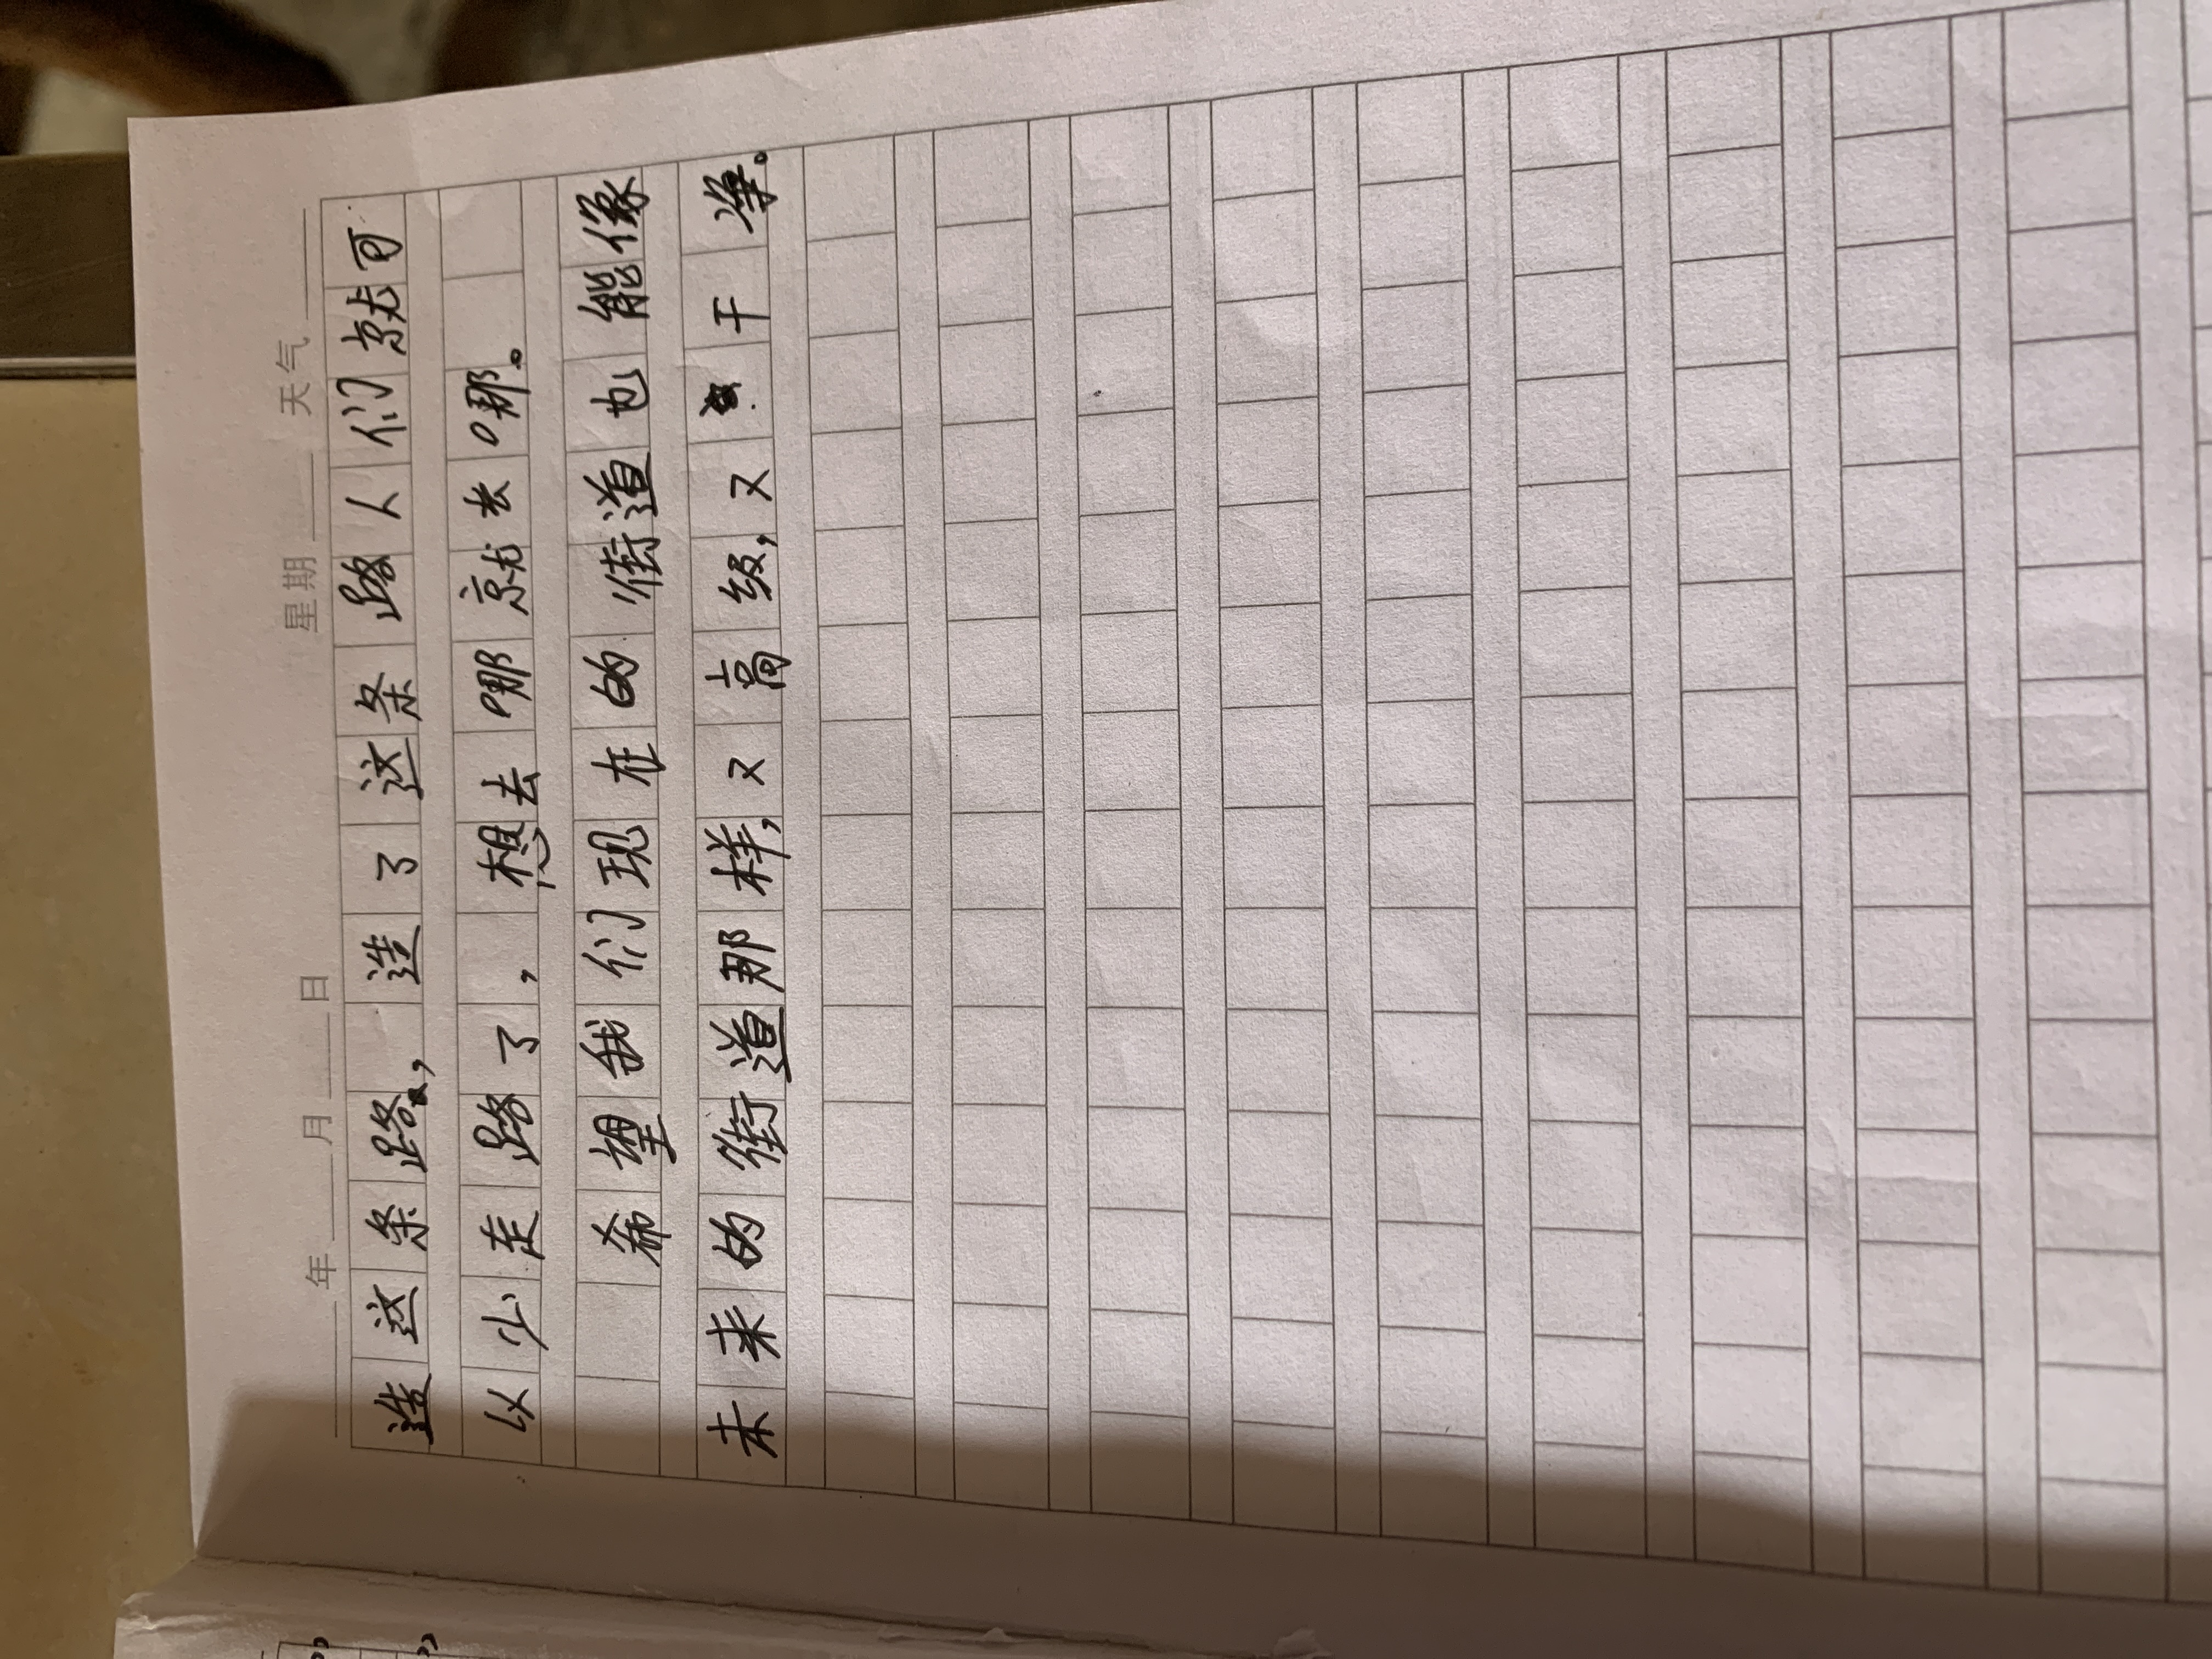 年 月 日 星期 天气
造这条路，造了这条路人们就可
以少走路了，想去哪就去哪。
希望我们现在的街道也能像
未来的街道那样，又高级，又干净。